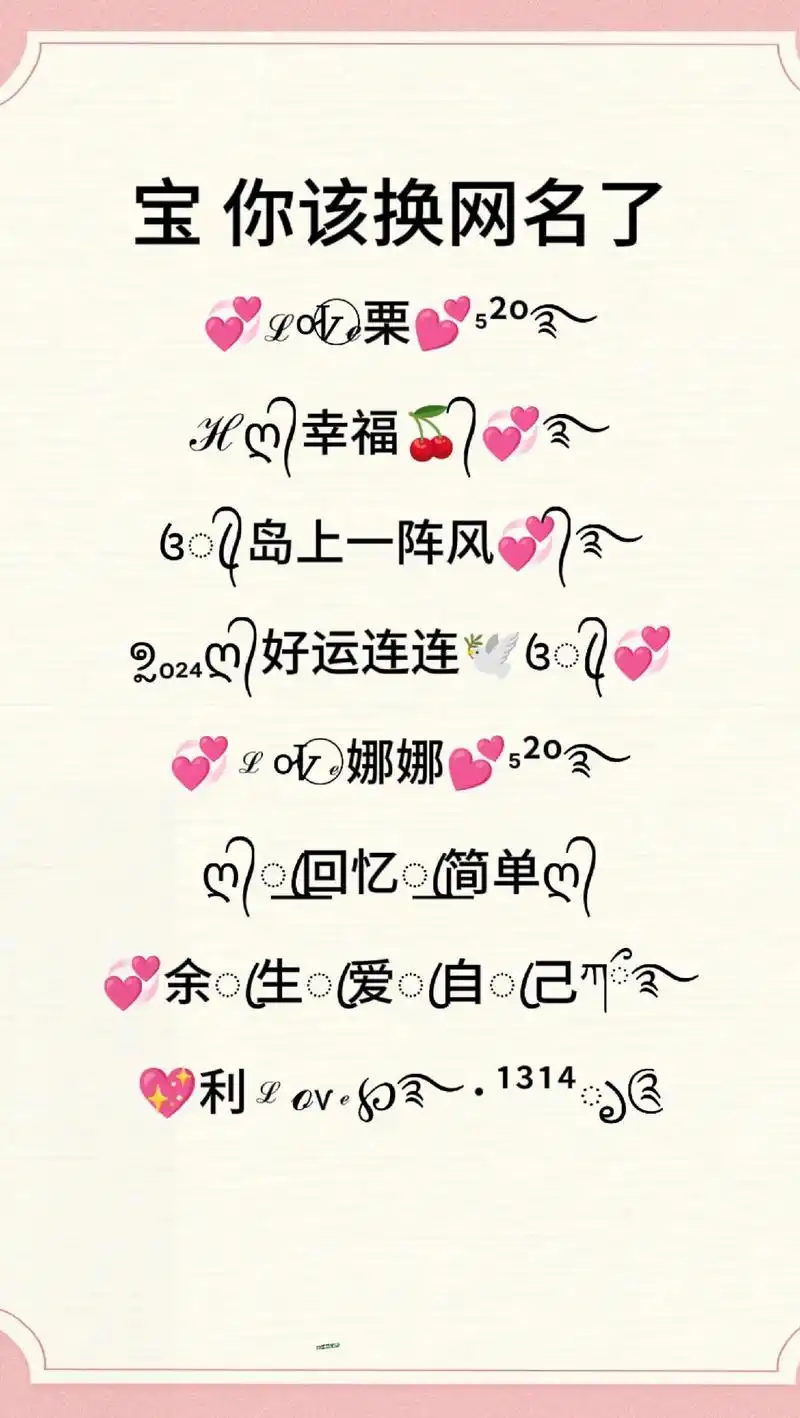 宝 你该换网名了
💞ℒoVⅇ⃝栗💕₅²⁰࿐
ℋღ᭄幸福🍒᭄💞࿐
ও᭄岛上一阵风💞᭄࿐
₂₀₂₄ღ᭄好运连连🕊️ও᭄💞
💞ℒoVⅇ⃝娜娜💕₅²⁰࿐
ღ᭄回忆简单ღ᭄
💞余ৎ生ৎ爱ৎ自ৎ己ཀ࿐
💖利ℒℴvℯ℘࿐·¹³¹⁴ꦿ༊